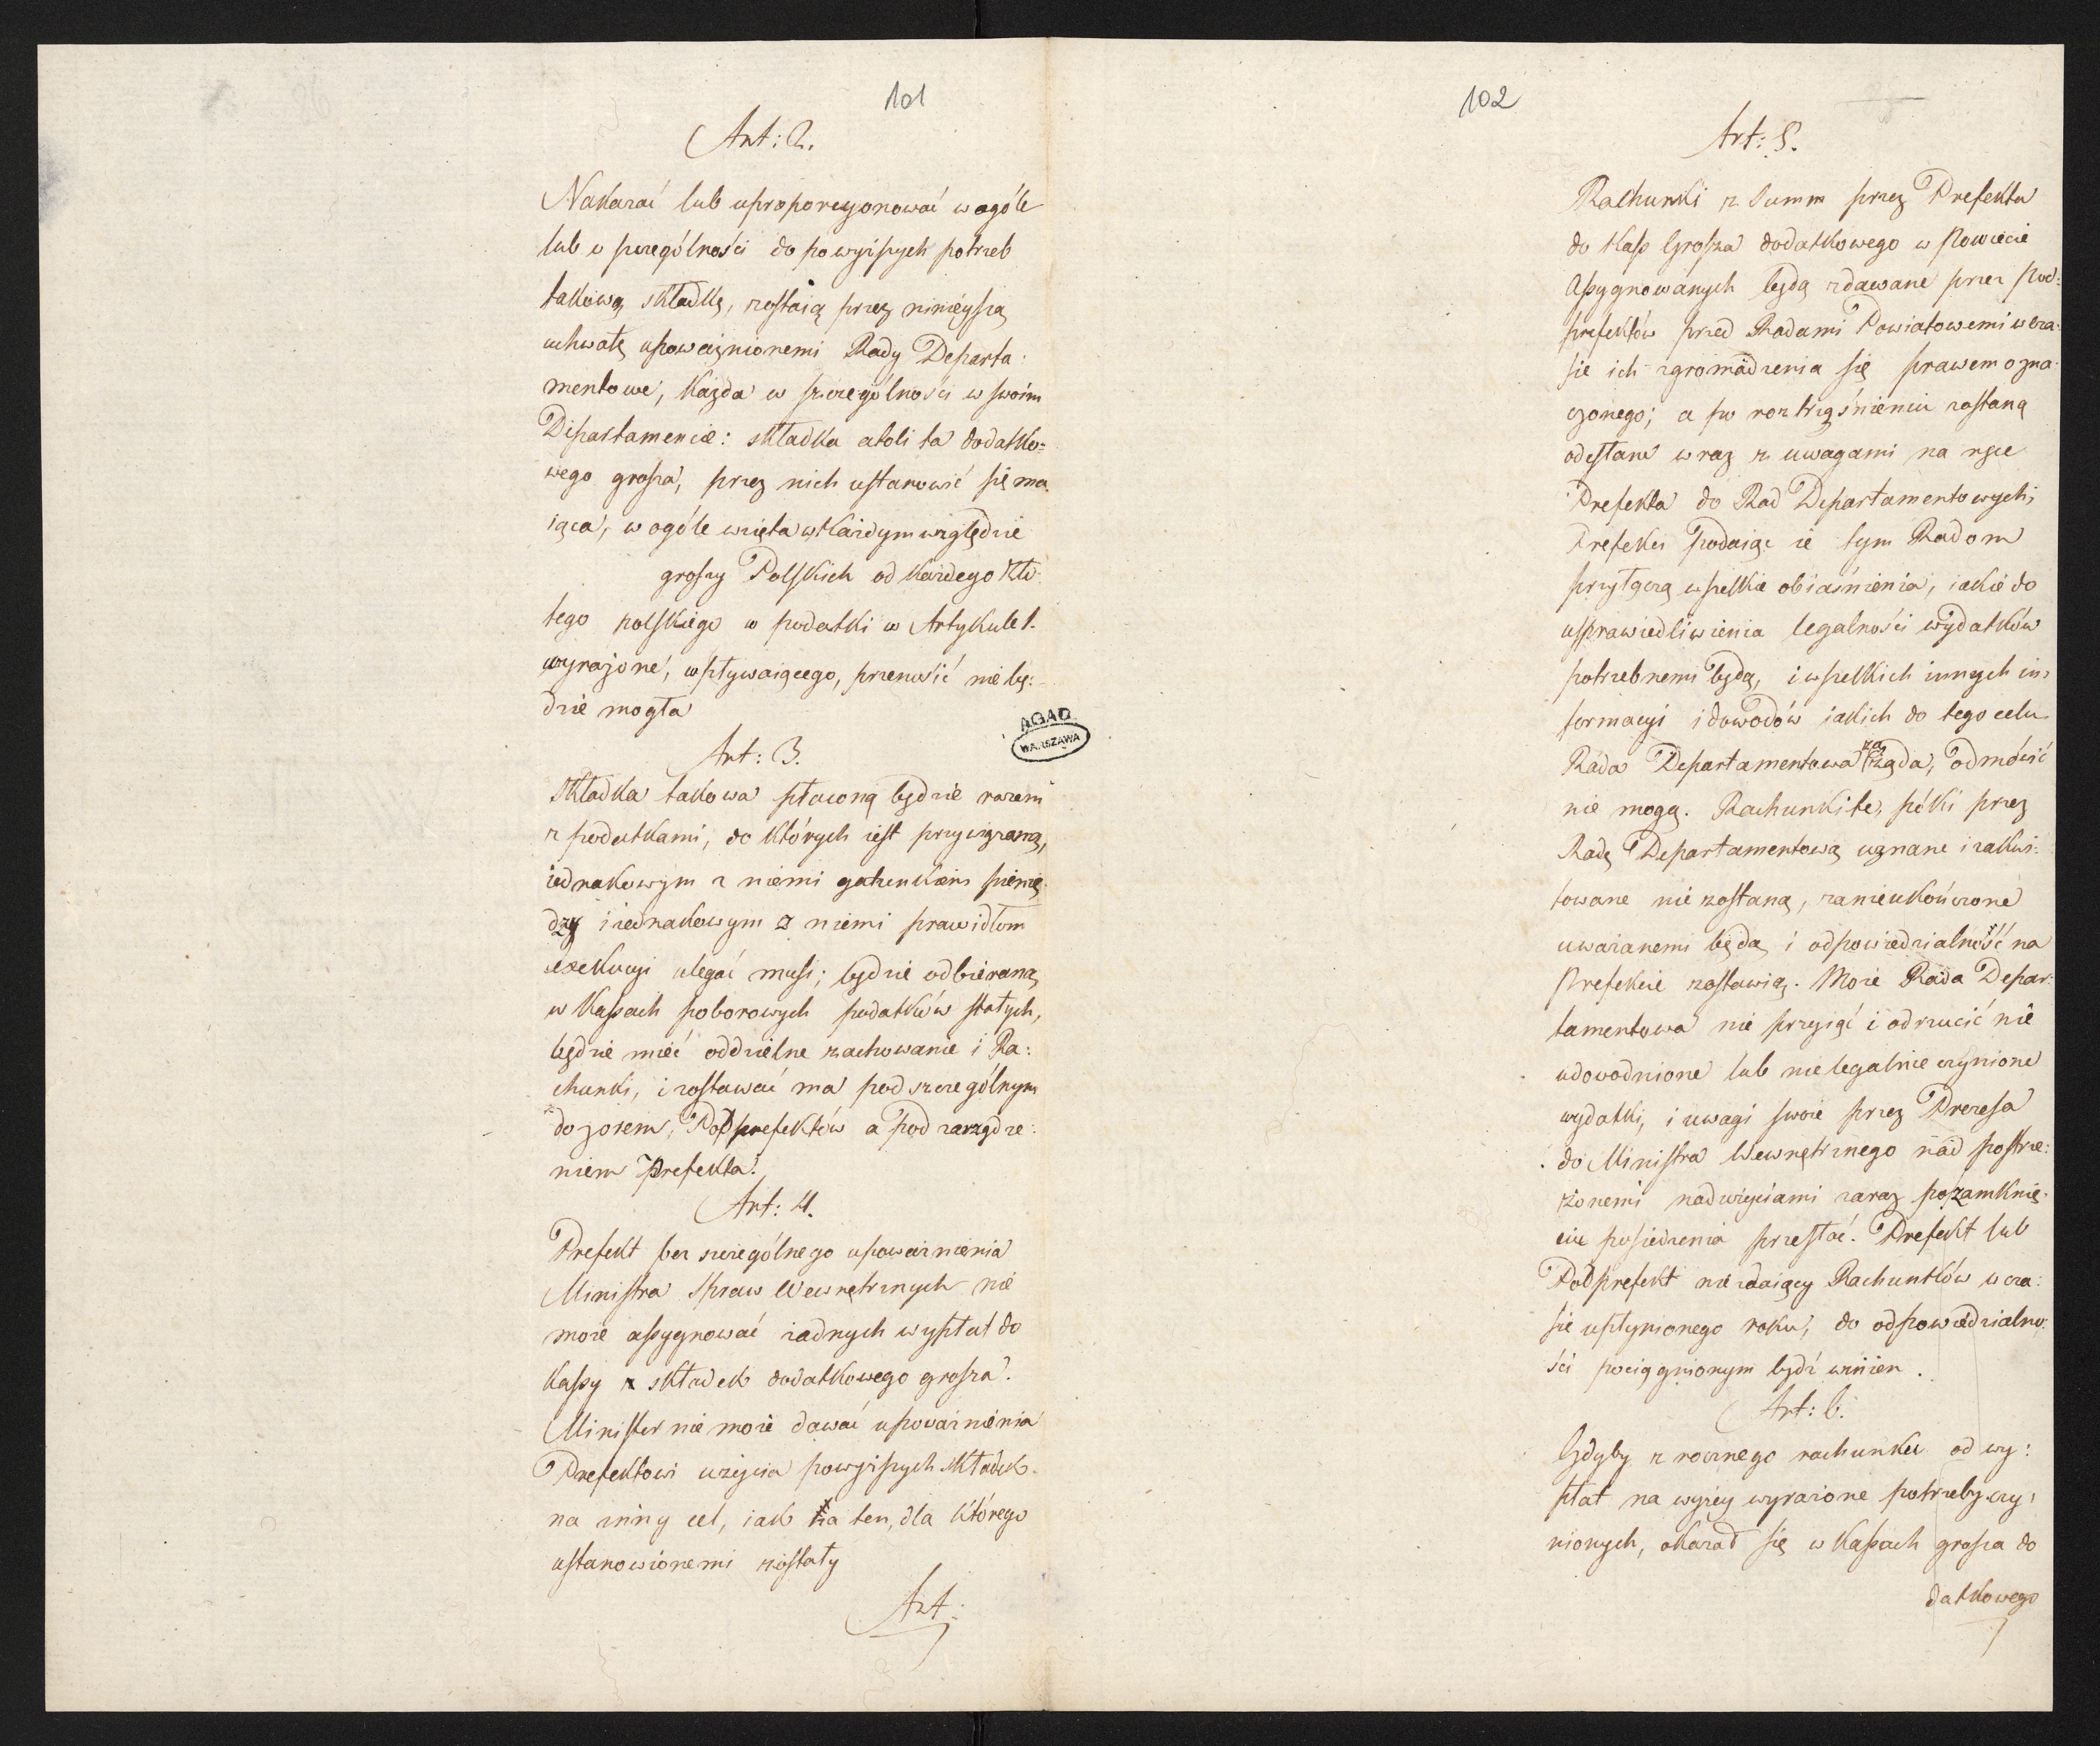 101
Art: 2.
Nakazać lub uproporcyonować w ogóle
lub w szczególności do powyższych potrzeb
takową składkę, zostaią przez ninieyszą
uchwałę upoważnionemi Rady Departa:
mentowe, każda w szczególności w swoim
Departamencie: składka atoli ta dodatko:
wego grosza, przez nich ustanowić się ma:
iąca, w ogóle wzięta w każdym względzie
groszy Polskich od każdego Zło:
tego polskiego w podatki w Artykule 1.
wyrażone, wpływaiącego, przenosić nie bę:
dzie mogła
Art: 3.
Składka takowa płaconą będzie razem
z podatkami, do których iest przywiązaną,
iednakowym z niemi gatunkiem pienię:
dzy i iednakowym z niemi prawidłom
exekucyi ulegać musi; będzie odbieraną
w Kassach poborowych podatków stałych,
będzie mieć oddzielne zachowanie i Ra:
chunki, i zostawać ma pod szczególnym
dozorem, Podprefektów a pod zarządze:
niem Prefekta.
Art: 4.
Prefekt bez szczególnego upoważnienia
Ministra Spraw Wewnętrznych nie
może assygnować żadnych wypłat do
Kassy z składek dodatkowego grosza.
Minister nie może dawać upoważnienia
Prefektowi użycia powyższych składek
na inny cel, iak na ten, dla którego
ustanowionemi zostały
Art:
AGAD
WARSZAWA
102
Art: 5.
Rachunki z Summ przez Prefekta
do Kass Grosza dodatkowego w Powiecie
Assygnowanych będą zdawane przez Pod:
prefektów przed Radami Powiatowemi w cza:
sie ich zgromadzenia się prawem ozna:
czonego; a po roztrząśnieniu zostaną
odesłane wraz z uwagami na ręce
Prefekta do Rad Departamentowych;
Prefekci podaiąc ie tym Radom
przyłączą wszelkie obiaśnienia, iakie do
usprawiedliwienia legalności wydatków
potrzebnemi będą, i wszelkich innych in:
formacyi i dowodów iakich do tego celu
Rada Departamentowa zażąda, odmówić
nie mogą. Rachunki te, póki przez
Radę Departamentową uznane i zakwi:
towane nie zostaną, za nieukończone
uważanemi będą i odpowiedzialność na
Prefekcie zostawią. Może Rada Depar:
tamentowa nie przyiąć i odrzucić nie
udowodnione lub nie legalnie czynione
wydatki, i uwagi swoie przez Prezesa
do Ministra Wewnętrznego nad postrze:
żonemi nadużyciami zaraz po zamknię:
ciu posiedzenia przesłać. Prefekt lub
Podprefekt nie zdaiący Rachunków w cza:
sie upłynionego roku, do odpowiedzialno:
ści pociągnionym bydź winien.
Art: 6.
Gdyby z rocznego rachunku od wy:
płat na wyżey wyrażone potrzeby czy:
nionych, okazał się w Kassach grosza do
datkowego